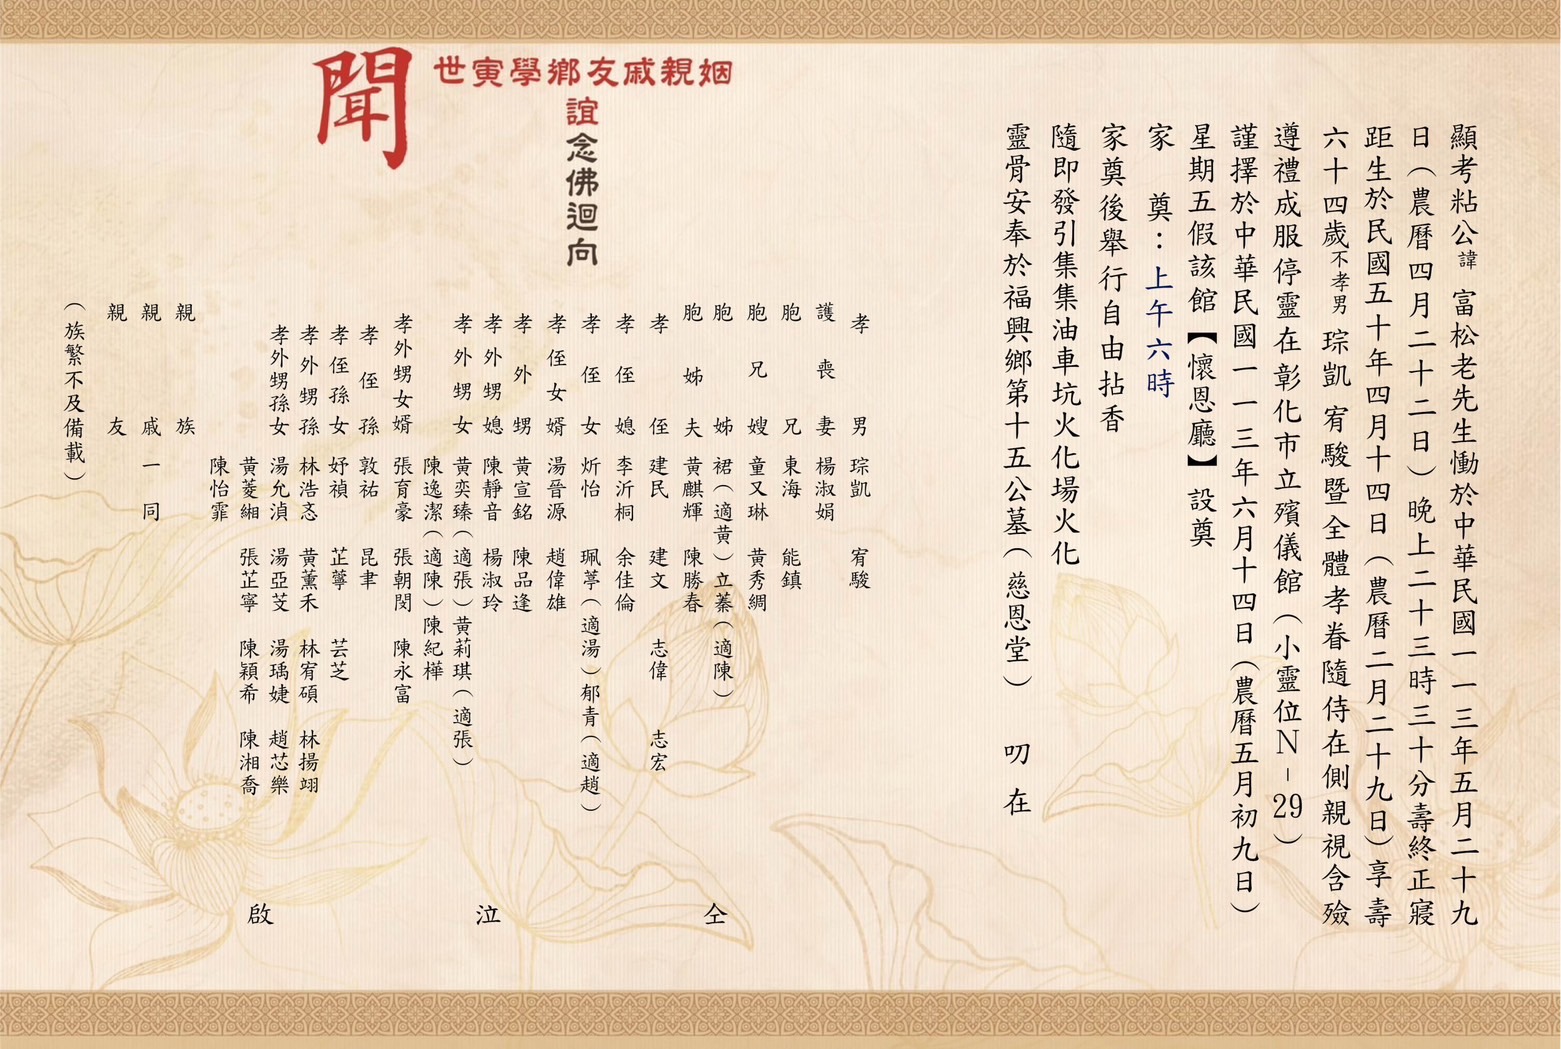 顯考粘公諱 富松老先生慟於中華民國一一三年五月二十九
日（農曆四月二十二日）晚上二十三時三十分壽終正寢
距生於民國五十年四月十四日（農曆二月二十九日）享壽
六十四歲不孝男 琮凱 宥駿暨全體孝眷隨侍在側親視含殮
遵禮成服停靈在彰化市立殯儀館（小靈位N-29）
謹擇於中華民國一一三年六月十四日（農曆五月初九日）
星期五假該館【懷恩廳】設奠
家 奠：上午六時
家奠後舉行自由拈香
隨即發引集集油車坑火化場火化
靈骨安奉於福興鄉第十五公墓（慈恩堂） 叨 在
姻親戚友鄉學寅世
誼念佛迴向
聞
孝男 琮凱 宥駿
護喪妻 楊淑娟
胞兄 東海 能鎮
胞兄嫂 童又琳 黃秀綢
胞姊 裙（適黃）立蓁（適陳）
胞姊夫 黃麒輝 陳勝春
孝侄 建民 建文 志偉 志宏
孝侄媳 李沂桐 余佳倫
孝侄女 炘怡 珮葶（適湯）郁青（適趙）
孝侄女婿 湯晉源 趙偉雄
孝外甥 黃宣銘 陳品逢
孝外甥媳 陳靜音 楊淑玲
孝外甥女 黃奕臻（適張）黃莉琪（適張）
陳逸潔（適陳）陳紀樺
孝外甥女婿 張育豪 張朝閔 陳永富
孝侄孫 敦祐 昆聿
孝侄孫女 妤禎 芷薴 芸芝
孝外甥孫 林浩忞 黃薰禾 林宥碩 林揚翊
孝外甥孫女 湯允湞 湯亞芠 湯瑀婕 趙芯樂
黃菱緗 張芷寧 陳穎希 陳湘喬
陳怡霏
親族
親戚一同
親友
（族繁不及備載）
仝 泣 啟